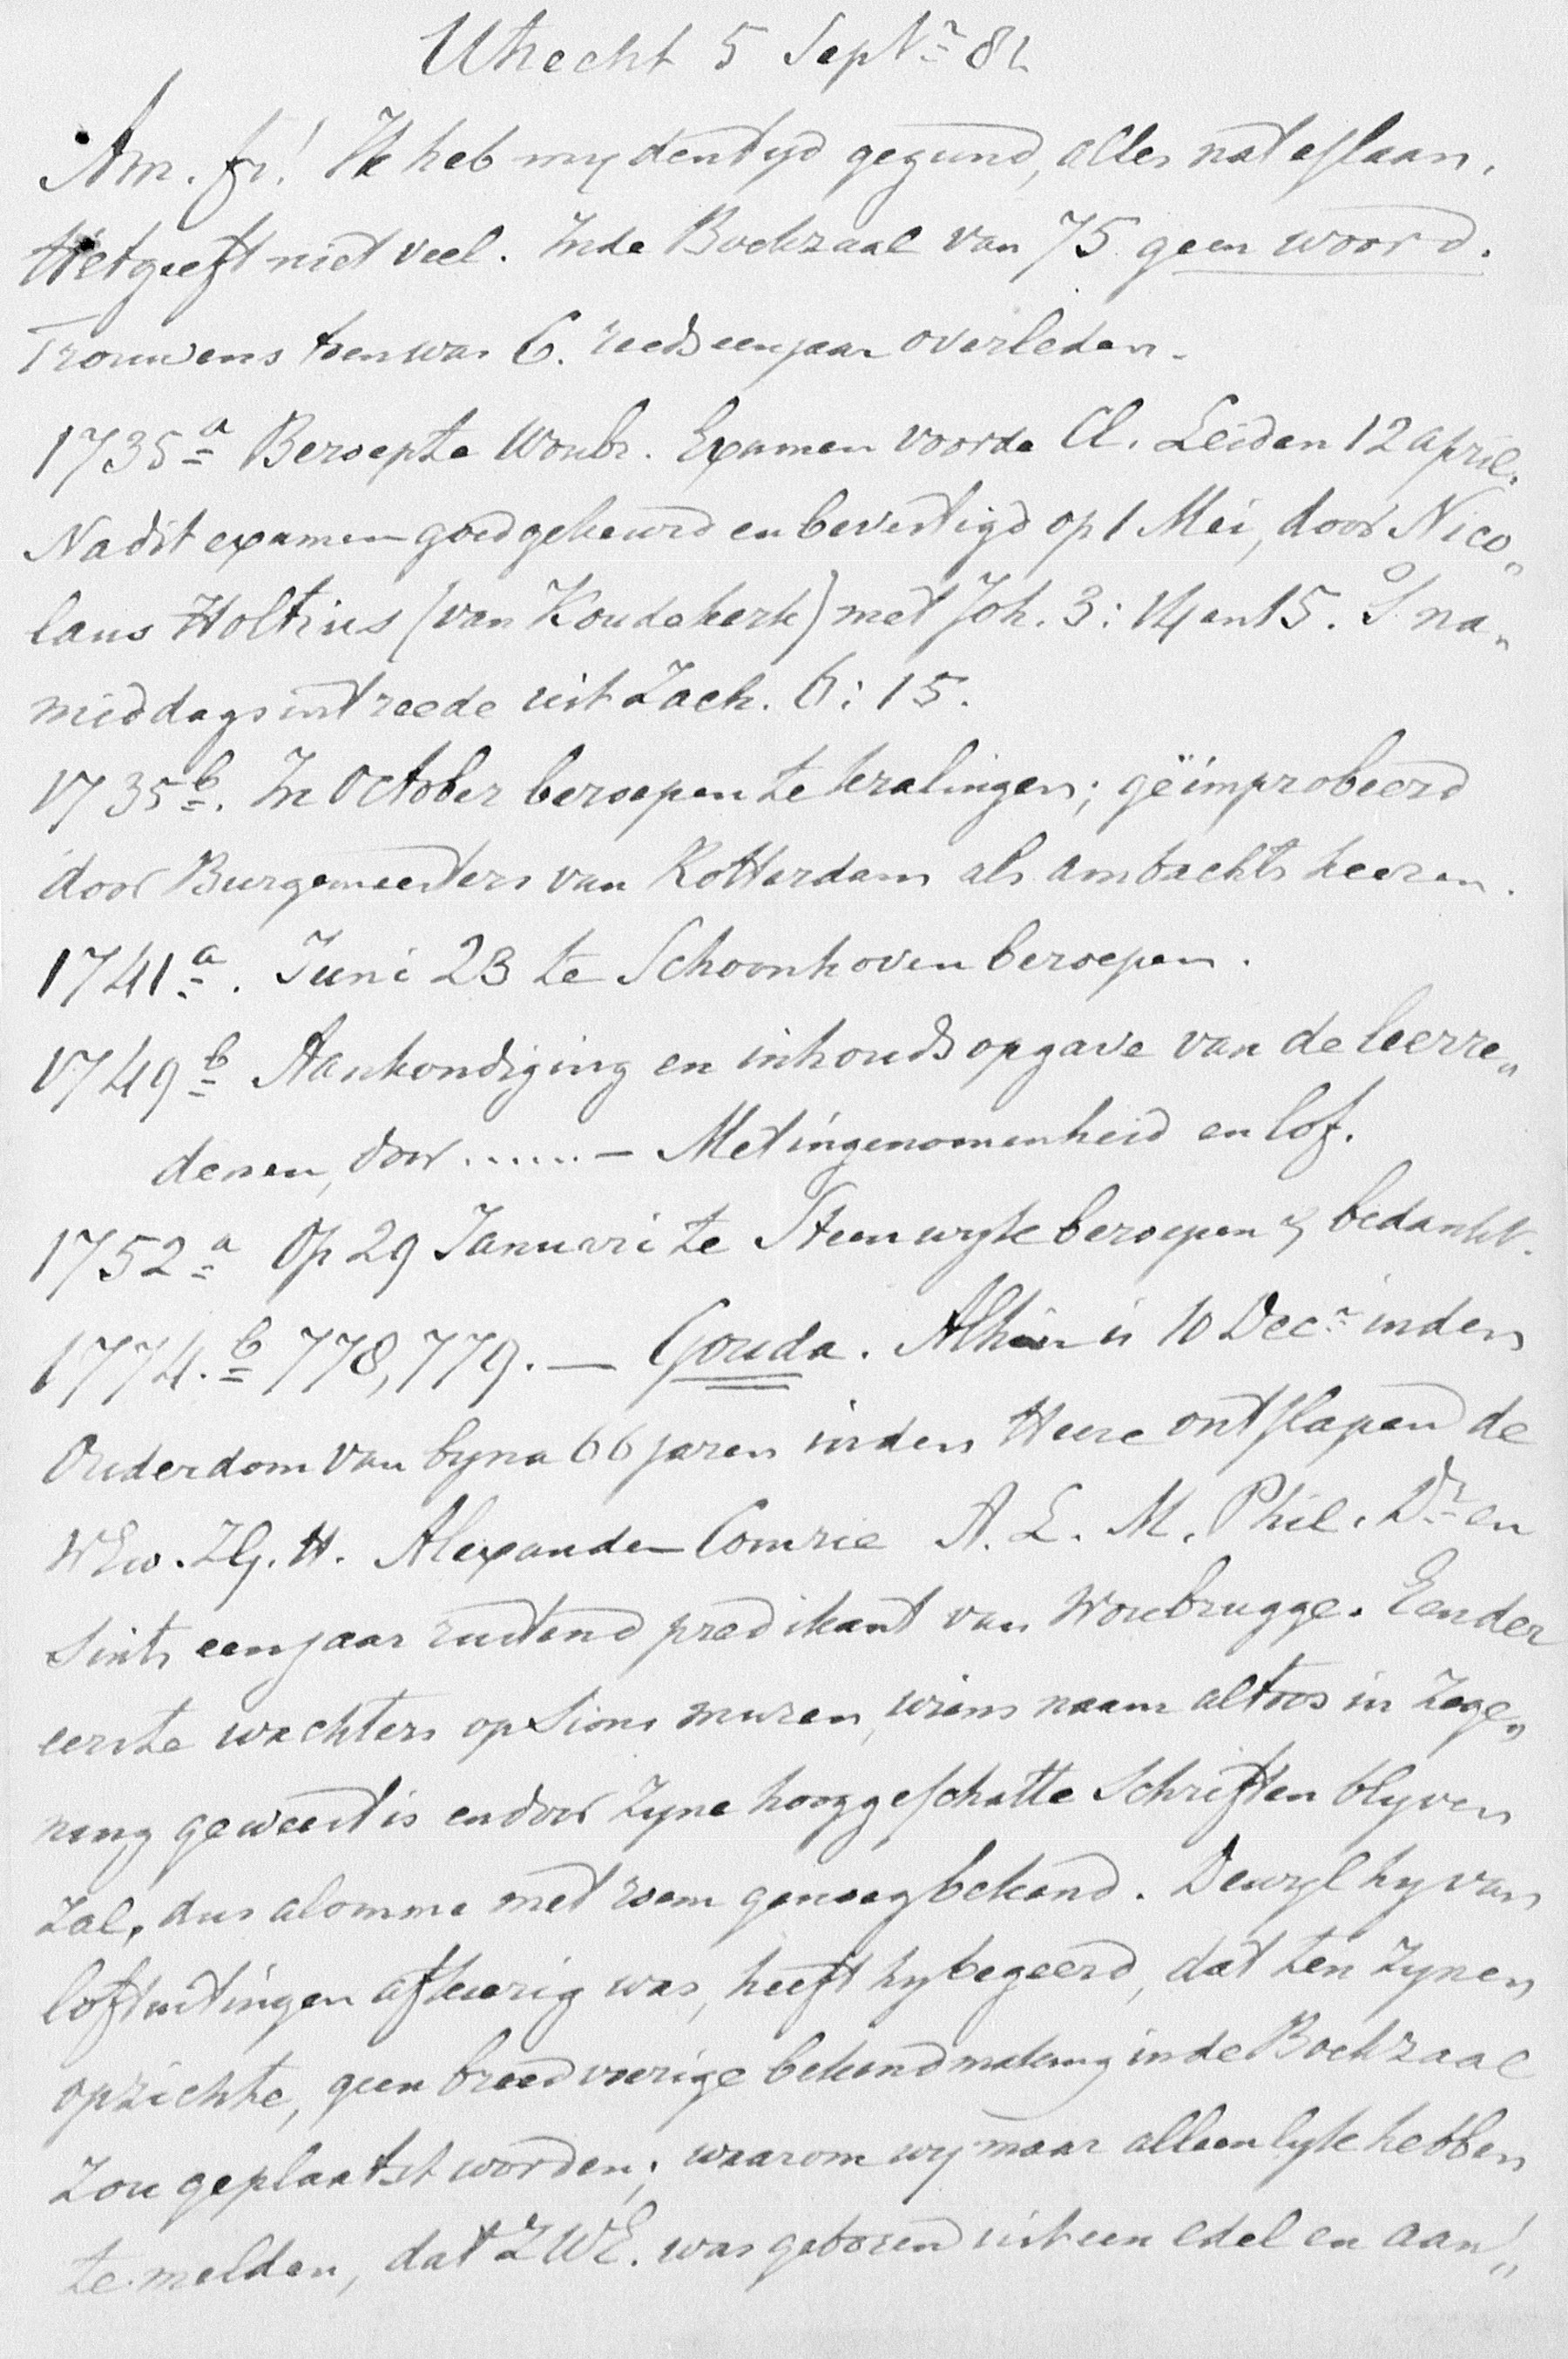 Utrecht 5 Septr 82
Am. fr! Ik heb my den tyd gegund, alles na te slaan.
Het geeft niet veel. In de Boekzaal van 75 geen woord.
Trouwens toen was C. reeds een jaar overleden.
1735a Beroep te Woubr. Examen voor de Cl. Leiden 12 april.
Na dit examen goedgekeurd en bevestigd op 1 Mei, door Nico„
laus Holtius (van Koudekerk) met Joh. 3: 14 en 15. S na„
middags intreede uit Zach. 6: 15.
1735b. In October beroepen te Kralingen; geïmprobeerd
door Burgemeesters van Rotterdam als ambachtsheeren.
1741a. Juni 23 te Schoonhoven beroepen.
1749b Aankondiging en inhoudsopgave van de leerre„
denen, door ...... — Met ingenomenheid en lof.
1752a Op 29 Januari te Steenwyk beroepen & bedankt.
1774.b 778,779. — Gouda. Alhier is 10 Decr in den
Ouderdom van byna 66 jaren in den Heere ontslapen de
WEw. ZG. H. Alexander Comrie A. L. M. Phil. Dr en
sints een jaar rustend predikant van Woubrugge. Een der
eerste wachters op Sions muren, wiens naam altoos in zege„
ning geweest is en door zyne hooggeschatte Schriften blyven
zal, dus alomme met roem genoeg bekend. Dewyl hy van
loftuitingen afkeerig was, heeft hy begeerd, dat ten zynen
opzichte, geen breedvoerige bekendmaking in de Boekzaal
zou geplaatst worden; waarom wy maar alleenlyk hebben
te melden, dat ZWE. was geboren uit een edel en aan„